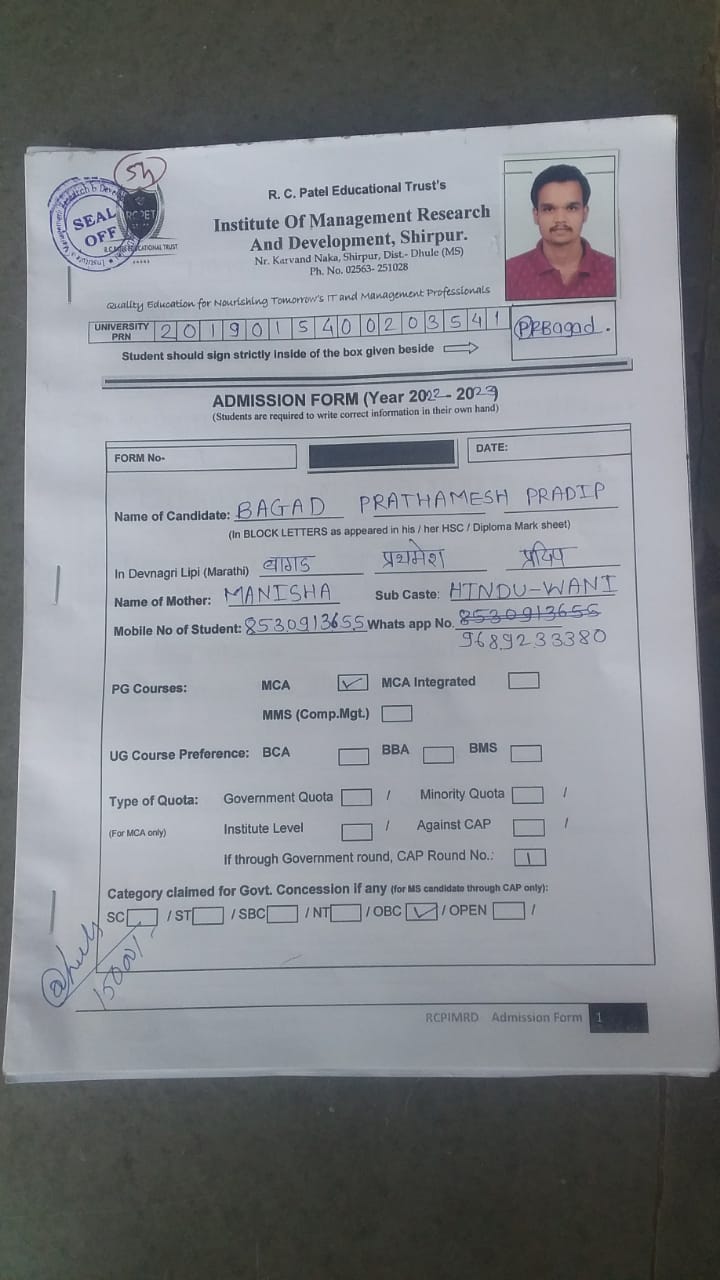 54
SEAL
OFF
RCPET
R.C. PATEL EDUCATIONAL TRUST
R. C. Patel Educational Trust's
Institute Of Management Research
And Development, Shirpur.
Nr. Karvand Naka, Shirpur, Dist.- Dhule (MS)
Ph. No. 02563- 251028
Quality Education for Nourishing Tomorrow's IT and Management Professionals
UNIVERSITY PRN 2019015400203541
PRBagad.
Student should sign strictly inside of the box given beside
ADMISSION FORM (Year 2022 - 2023)
(Students are required to write correct information in their own hand)
FORM No-
DATE:
Name of Candidate: BAGAD PRATHAMESH PRADIP
(In BLOCK LETTERS as appeared in his / her HSC / Diploma Mark sheet)
In Devnagri Lipi (Marathi) बागड प्रथमेश प्रदिप
Name of Mother: MANISHA Sub Caste: HINDU-WANI
Mobile No of Student: 8530913655 Whats app No. 8530913655
9689233380
PG Courses: MCA MCA Integrated
MMS (Comp.Mgt.)
UG Course Preference: BCA BBA BMS
Type of Quota: Government Quota / Minority Quota /
(For MCA only) Institute Level / Against CAP /
If through Government round, CAP Round No.: 1
Category claimed for Govt. Concession if any (for MS candidate through CAP only):
SC / ST / SBC / NT / OBC / OPEN /
RCPIMRD Admission Form 1